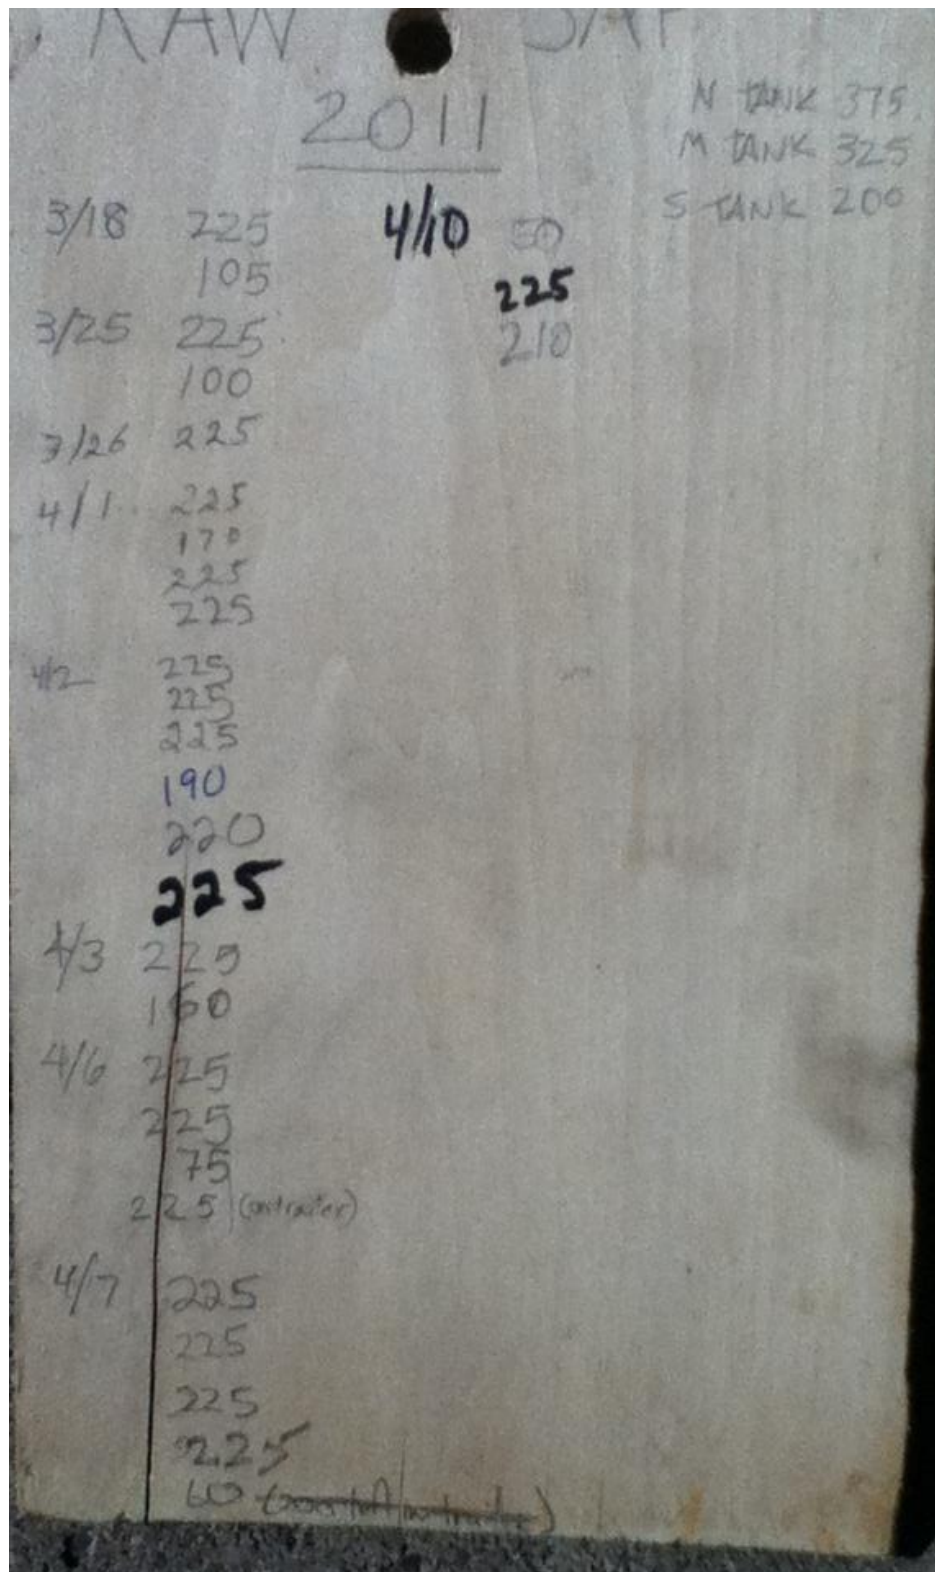 RAW SAP
2011
N TANK 375
M TANK 325
S TANK 200
3/18 225
105
3/25 225
100
3/26 225
4/1 225
170
225
225
4/2 225
225
225
190
220
225
4/3 225
150
4/6 225
225
75
225 (on trailer)
4/7 225
225
225
225
60
4/10 50
225
210